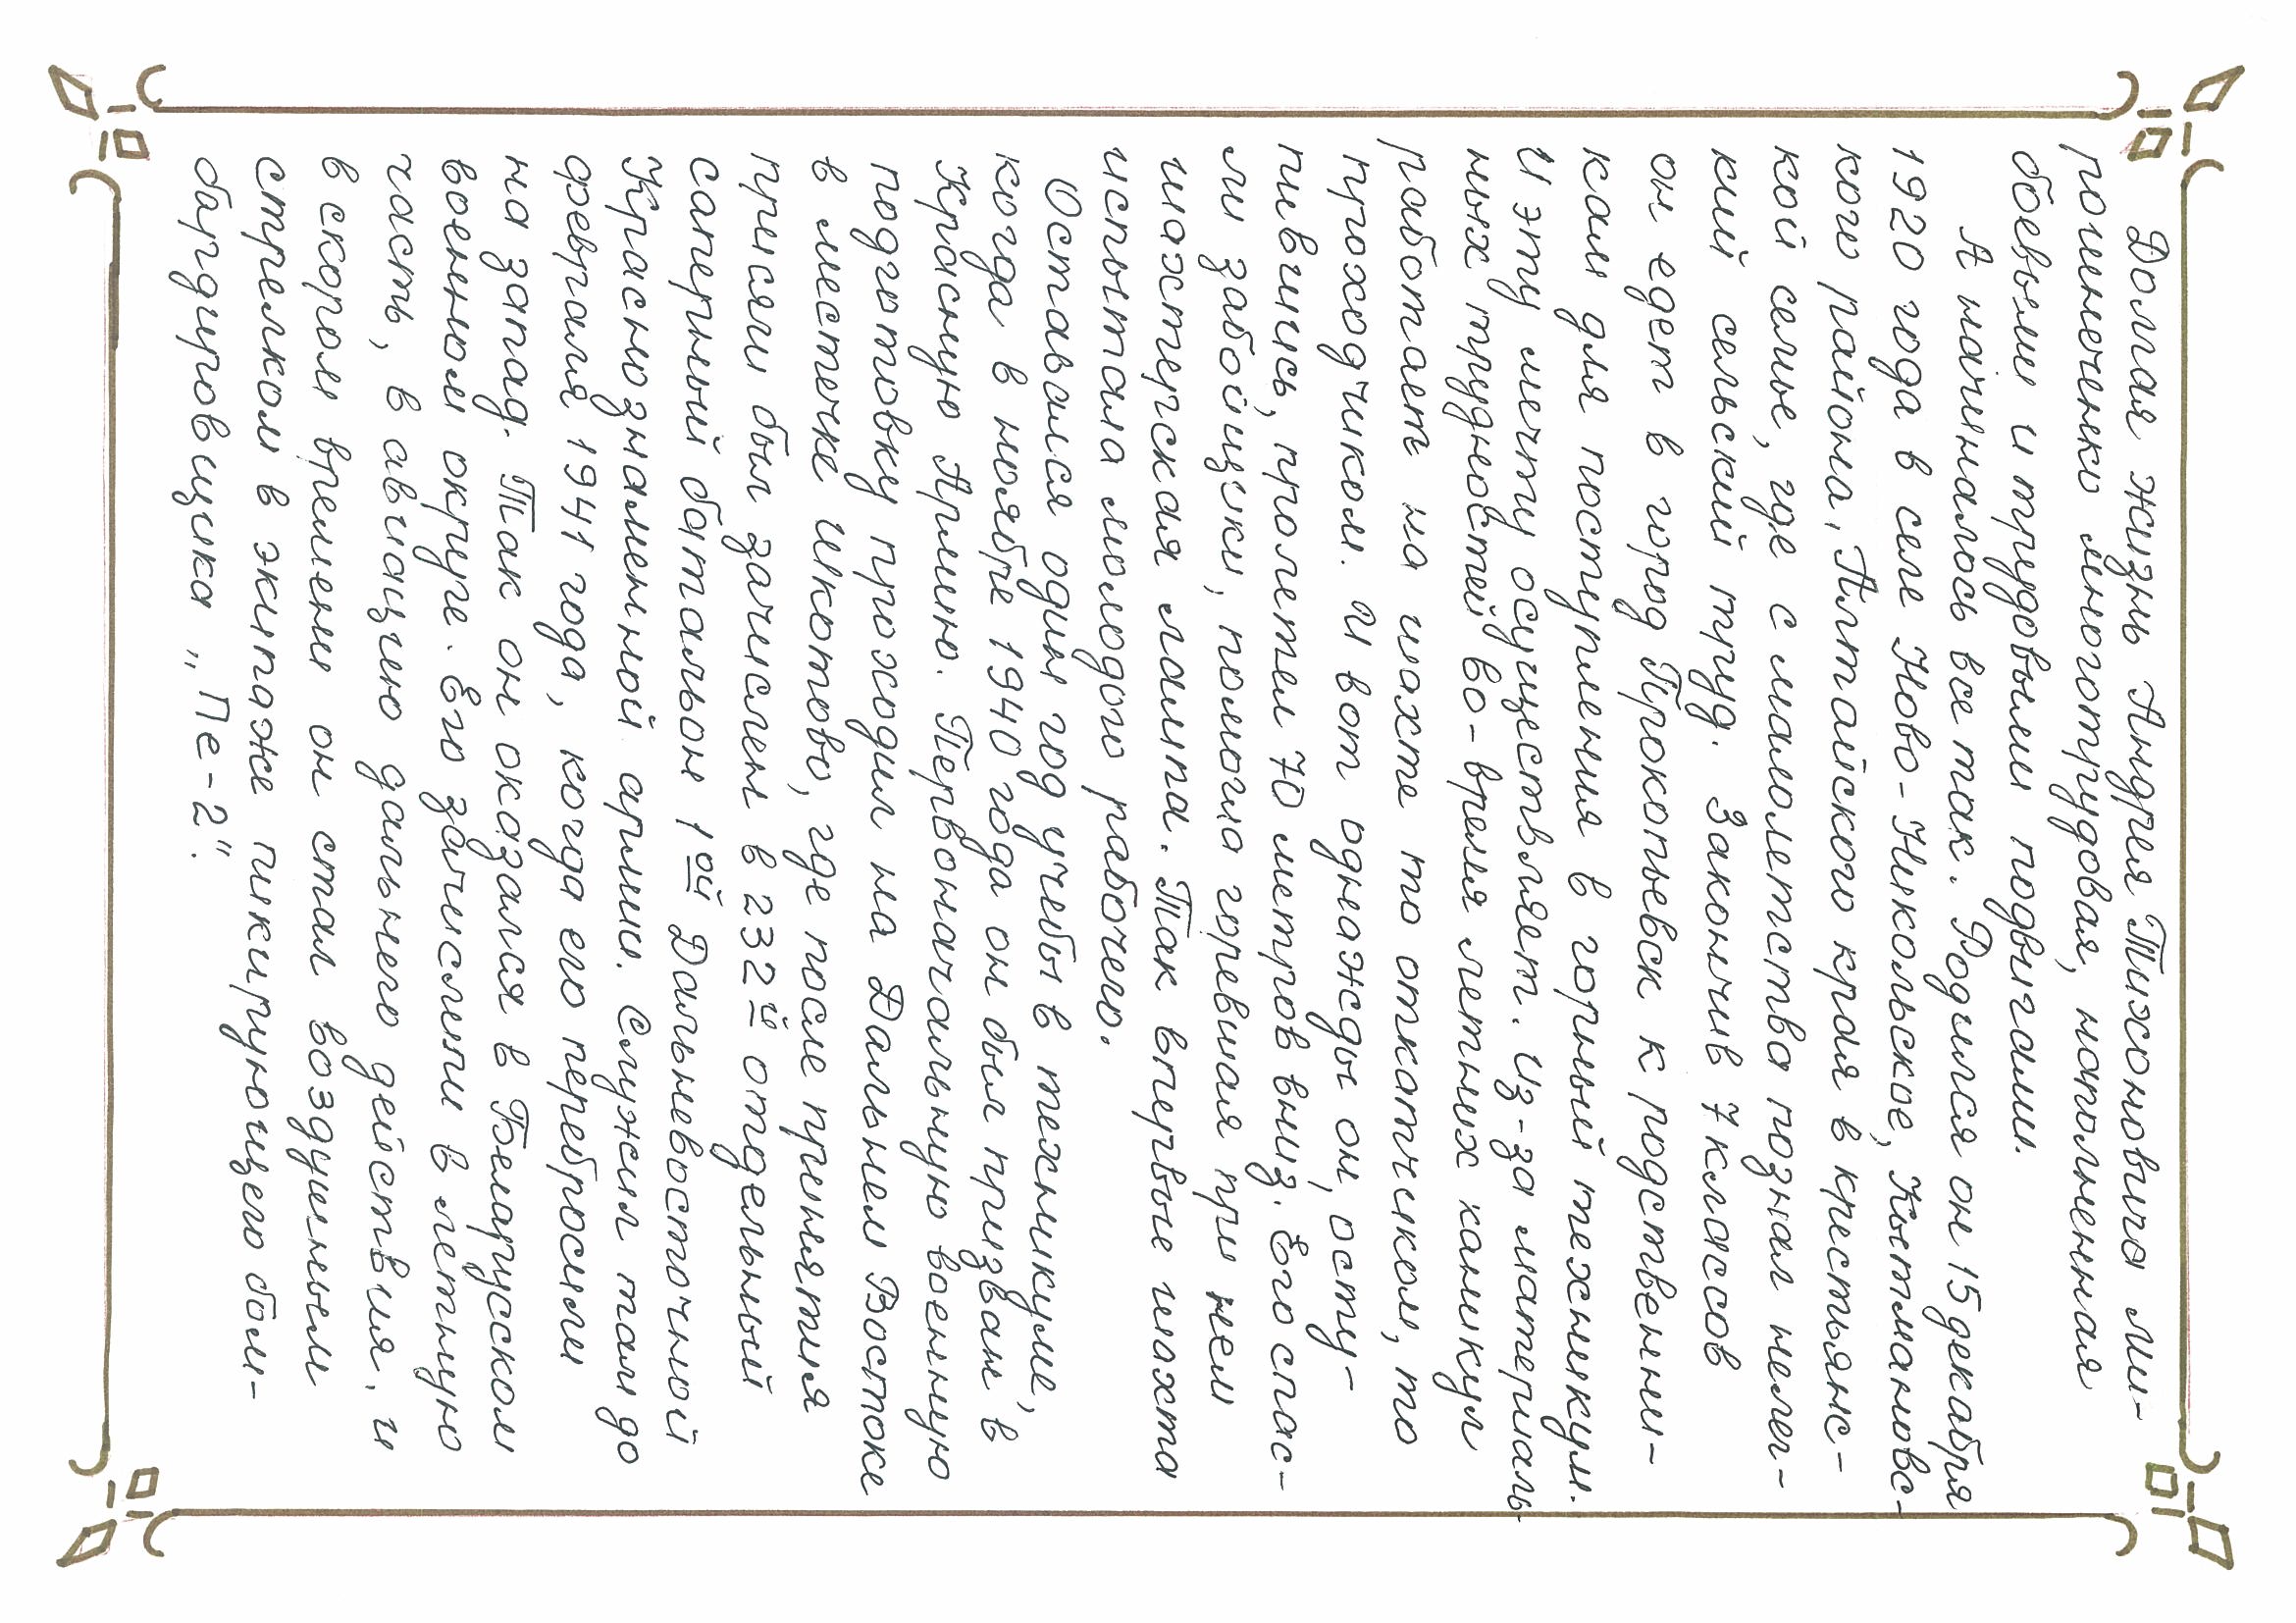 Долгая жизнь Андрея Тихоновича Ми-
рошниченко многотрудовая, наполненная
боевыми и трудовыми подвигами.
А начиналось все так. Родился он 15 декабря
1920 года в селе Ново-Никольское, Кытмановс-
кого района, Алтайского края в крестьянс-
кой семье, где с малолетства познал нелег-
кий сельский труд. Закончив 7 классов
он едет в город Прокопьевск к родственни-
кам для поступления в горный техникум.
И эту мечту осуществляет. Из-за материаль-
ных трудностей во-время летних каникул
работает на шахте то откатчиком, то
проходчиком. И вот однажды он, осту-
пившись, пролетел 70 метров вниз. Его спас-
ли забойщики, помогла горевшая при нем
шахтерская лампа. Так впервые шахта
испытала молодого рабочего.
Оставался один год учебы в техникуме,
когда в ноябре 1940 года он был призван в
Красную Армию. Первоначальную военную
подготовку проходил на Дальнем Востоке
в местечке Шкотово, где после принятия
присяги был зачислен в 232й отдельный
саперный батальон 1ой Дальневосточной
Краснознаменной армии. Служил там до
февраля 1941 года, когда его перебросили
на запад. Так он оказался в Беларусском
военном округе. Его зачислили в летную
часть, в авиацию дальнего действия, и
в скором времени он стал воздушным
стрелком в экипаже пикирующего бом-
бардировщика „Пе-2".